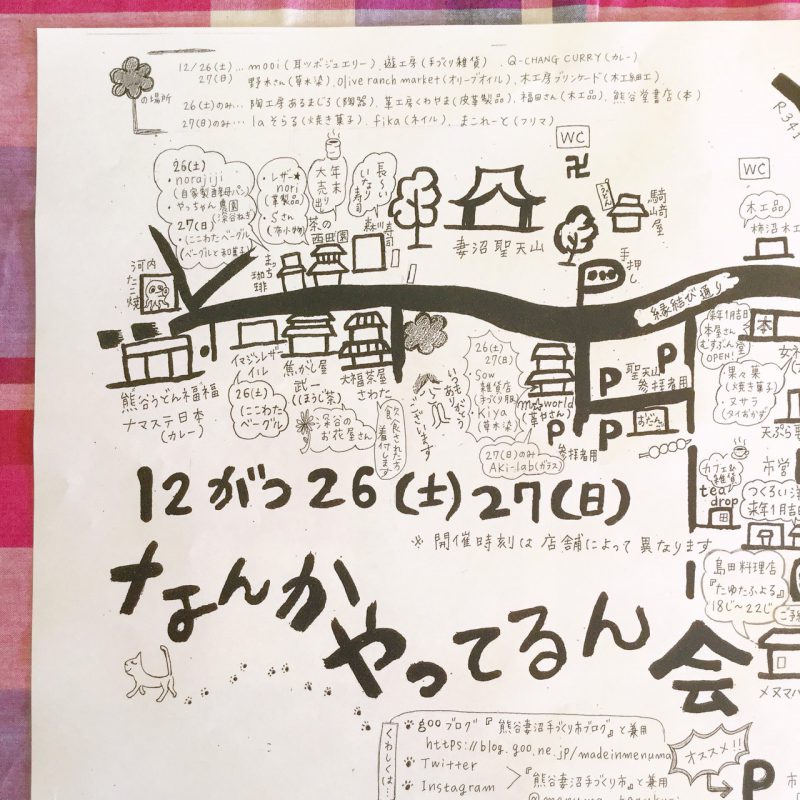 12/26(土)… mooi(耳ツボジュエリー) 、遊工房(手づくり雑貨) 、Q-CHANG CURRY(カレー)
27(日) 野木さん(草木染)、Olive ranch market(オリーブオイル)、木工房プリンケード(木工細工)
の場所
26(土)のみ… 陶工房あるまじろ(陶器)、革工房くわやま(皮革製品)、福田さん(木工品)、熊谷堂書店(本)
27(日)のみ… laそらる(焼き菓子)、fika(ネイル)、まこれーと(フリマ)
R341
WC
卍
WC
26(土)
・norajiji
(自家製酵母パン)
・やっちゃん農園
(深谷ねぎ)
27(日)
・にこわたベーグル
(ベーグルと和菓子)
・レザー★
nori
(革製品)
・Sさん
(布小物)
年末
大売出り
長〜い
いなり
寿司
茶の
西田園
森川寿司
まっち
珈琲
河内
たこ焼
妻沼聖天山
うどん
騎崎屋
手押し
木工品
柿沼木工
縁結び通り
来年1月吉日
本屋さん
むすぶん堂
OPEN!
本
果々菓
(焼き菓子)
・ヌサラ
(タイおかず)
天ぷら
熊谷うどん福福
ナマステ日本
(カレー)
イマジンレザー
イル
26(土)
(にこわた
ベーグル)
焦がし屋
武一
(ほうじ茶)
大福茶屋
さわた
深谷の
お花屋さん
飲食された方
着付します
いつも
ありがとう
ございます
26(土)
27(日)
・Sow
雑貨店
(手づくり服)
・Kiya
(草木染)
27(日)のみ
AKi-lab(ガラス)
m☆world
(革やさん)
P
参拝者用
P
P
P
聖天山
参拝者用
おだんご
カフェ&
雑貨
tea
drop
市営
つくろい
来年1月吉日
12がつ26(土)27(日)
※ 開催時刻は店舗によって異なります
なんか
やってるん会
島田料理店
『たゆたふよる』
18じ〜22じ
メヌマパ
くわしくは…
gooブログ『熊谷妻沼手づくり市ブログ』と兼用
https://blog.goo.ne.jp/madeinmenuma
Twitter
Instagram
『熊谷妻沼手づくり市』と兼用
オススメ!!
P
市